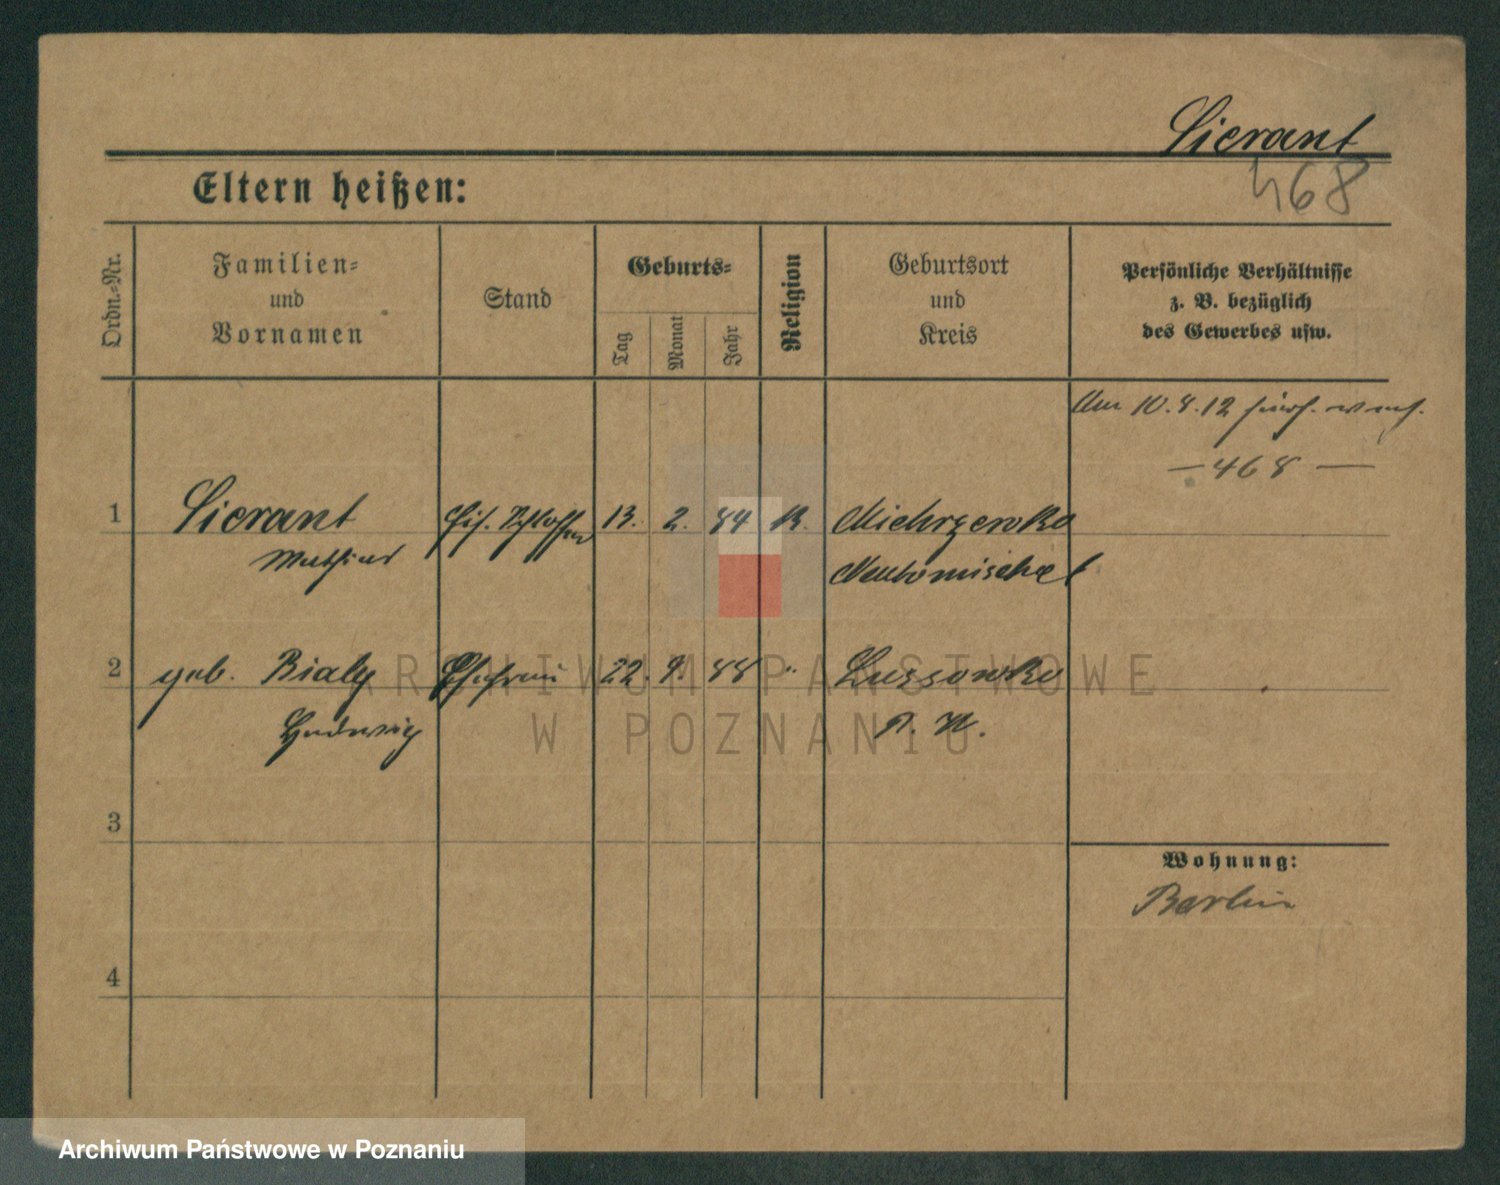 Sierant
468
Eltern heißen:
Ordn.-Nr.
Familien-
und
Vornamen
Stand
Geburts-
Tag
Monat
Jahr
Religion
Geburtsort
und
Kreis
Persönliche Verhältnisse
z. B. bezüglich
des Gewerbes usw.
Am 10.8.12
— 468 —
1 Sierant 13. 2. 84 K.
Mathias Neutomischel
2 geb. Bialy Ehefrau 22. 9. 88 " Lussowko
Hedwig P. W.
3
4
Wohnung:
Berlin
ARCHIWUM PAŃSTWOWE
W POZNANIU
Archiwum Państwowe w Poznaniu